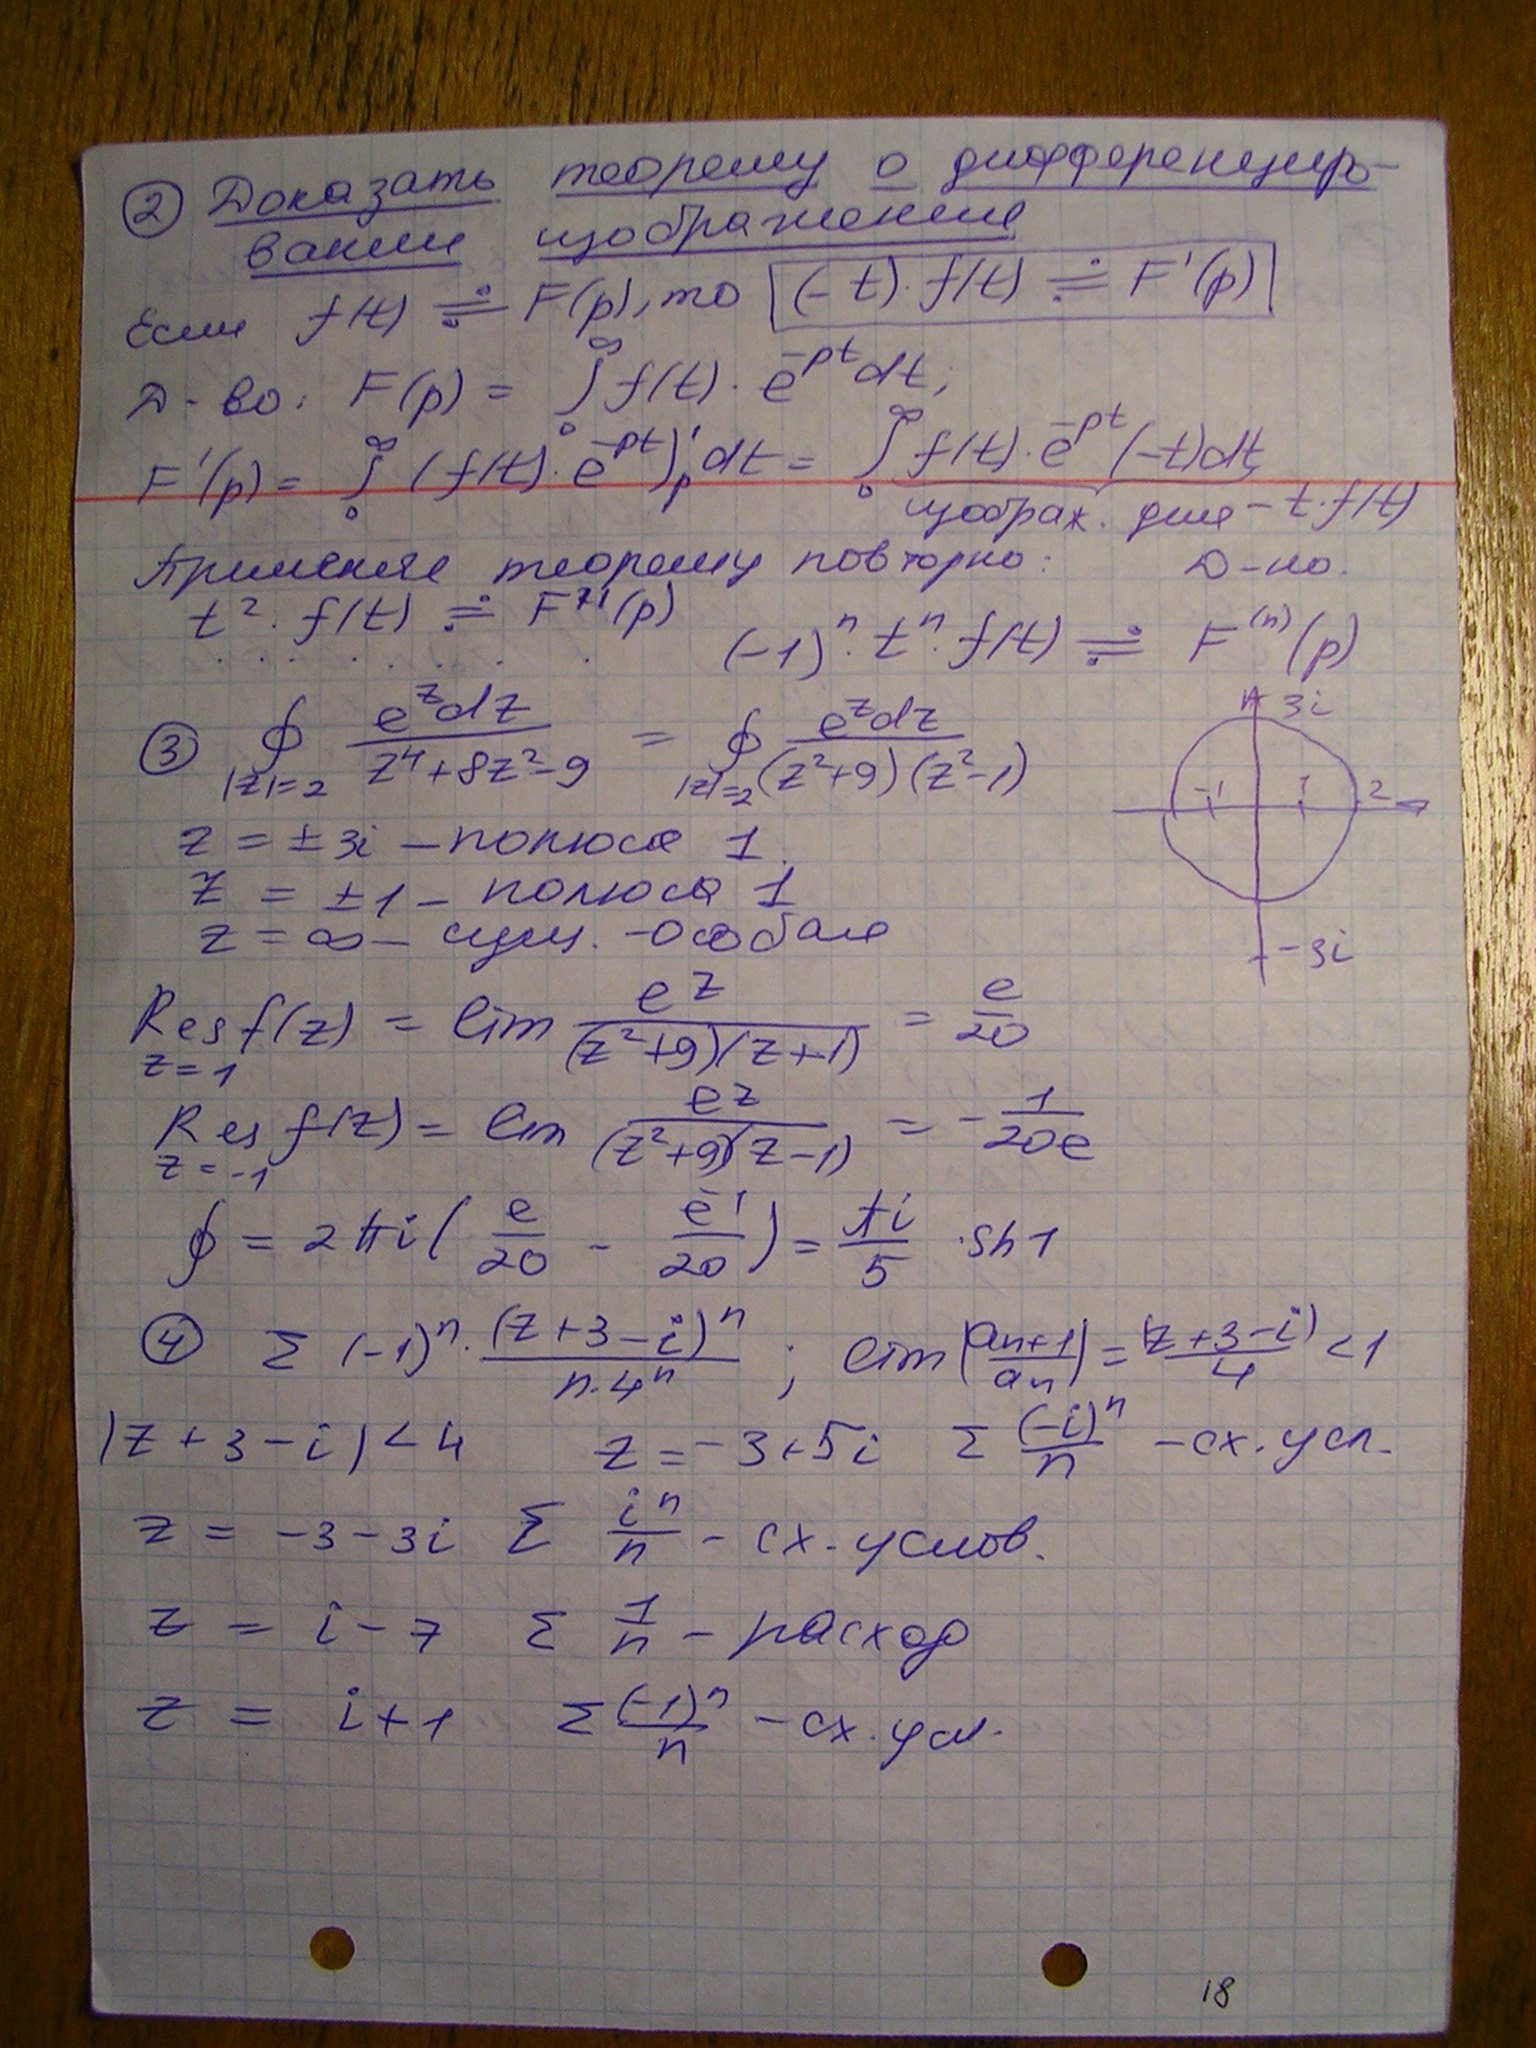 ② Доказать теорему о дифференциро-
вании изображения
Если f(t) ≓ F(p), то (-t)·f(t) ≓ F'(p)
Д-во: F(p) = ∫₀^∞ f(t)·e^{-pt}dt;
F'(p) = ∫₀^∞ (f(t)·e^{-pt})'_p dt = ∫₀^∞ f(t)·e^{-pt}(-t)dt
изображ. для -t·f(t)
Применяя теорему повторно: Д-но.
t²·f(t) ≓ F''(p)
. . . . . . . . (-1)ⁿ·tⁿ·f(t) ≓ F^{(n)}(p)
③ ∮_{|z|=2} e^z dz / (z⁴+8z²-9) = ∮_{|z|=2} e^z dz / ((z²+9)(z²-1))
3i
-1 1 2
-3i
z = ±3i – полюса 1.
z = ±1 – полюса 1
z = ∞ – сущ. -особая
Res_{z=1} f(z) = lim e^z / ((z²+9)(z+1)) = e/20
Res_{z=-1} f(z) = lim e^z / ((z²+9)(z-1)) = -1/(20e)
∮ = 2πi(e/20 - e^{-1}/20) = πi/5 ·sh1
④ Σ (-1)ⁿ·(z+3-i)ⁿ/(n·4ⁿ); lim|a_{n+1}/a_n| = |z+3-i|/4 <1
|z+3-i|<4 z = -3+5i Σ (-i)ⁿ/n – сх. усл.
z = -3-3i Σ iⁿ/n – сх. услов.
z = i-7 Σ 1/n – расход
z = i+1 Σ (-1)ⁿ/n – сх. усл.
18